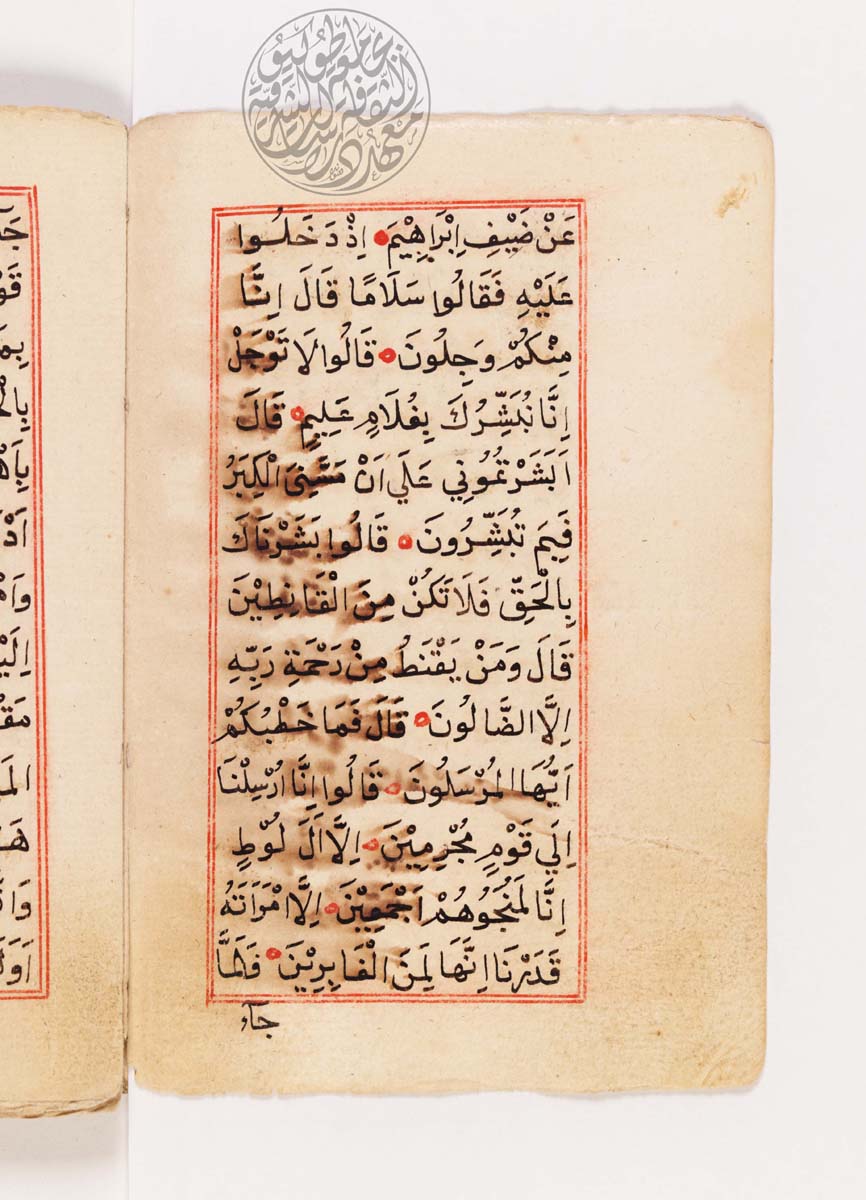 عَنْ ضَيْفِ اِبْرَاهِيْمَ اِذْ دَخَلُوا
عَلَيْهِ فَقَالُوا سَلَامًا قَالَ اِنَّا
مِنْكُمْ وَجِلُونَ قَالُوا لَا تَوْجَلْ
اِنَّا نُبَشِّرُكَ بِغُلَامٍ عَلِيمٍ قَالَ
اَبَشَرْتُمُونِي عَلَي اَنْ مَسَّنِيَ الْكِبَرُ
فَبِمَ تُبَشِّرُونَ قَالُوا بَشَرْنَاكَ
بِالْحَقِّ فَلَا تَكُنْ مِنَ الْقَانِطِيْنَ
قَالَ وَمَنْ يَقْنَطُ مِنْ رَحْمَةِ رَبِّهِ
اِلَّا الضَّالُونَ قَالَ فَمَا خَطْبُكُمْ
اَيُّهَا المُرْسَلُونَ قَالُوا اِنَّا اُرْسِلْنَا
اِلَي قَوْمٍ مُجْرِمِيْنَ اِلَّا اَلَ لُوْطٍ
اِنَّا لَمَنَجُوُهُمْ اَجْمَعِيْنَ اِلَّا امْرَاَتَهُ
قَدَرْنَا اِنَّهَا لَمِنَ الْغَابِرِيْنَ فَلَمَّا
جَآءَ